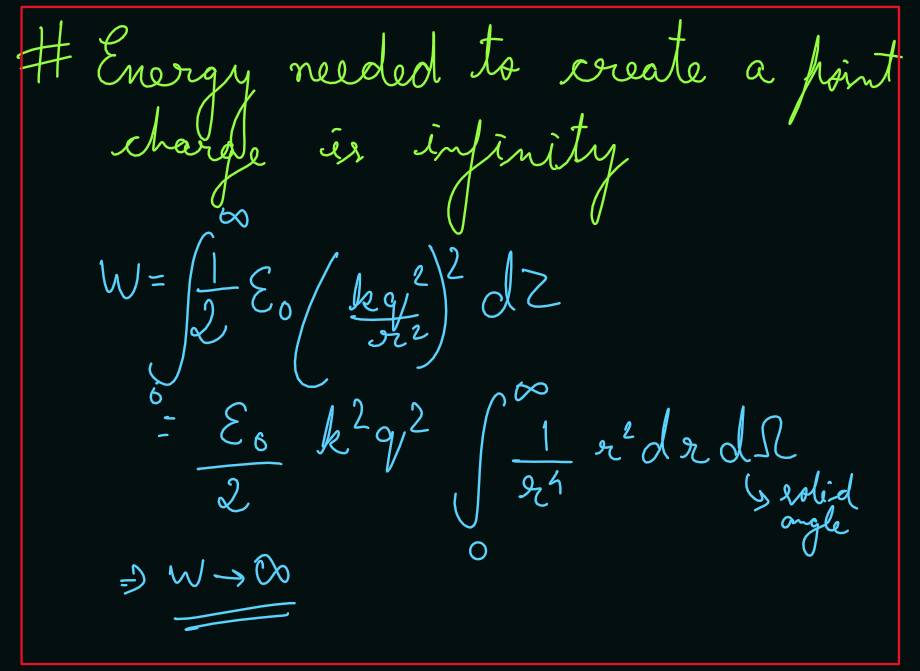 # Energy needed to create a point
charge is infinity
W = ∫₀^∞ 1/2 ε₀ (kq²/r²)² dτ
= ε₀/2 k²q² ∫₀^∞ 1/r⁴ r² dr dΩ
↳ solid
angle
⇒ W → ∞